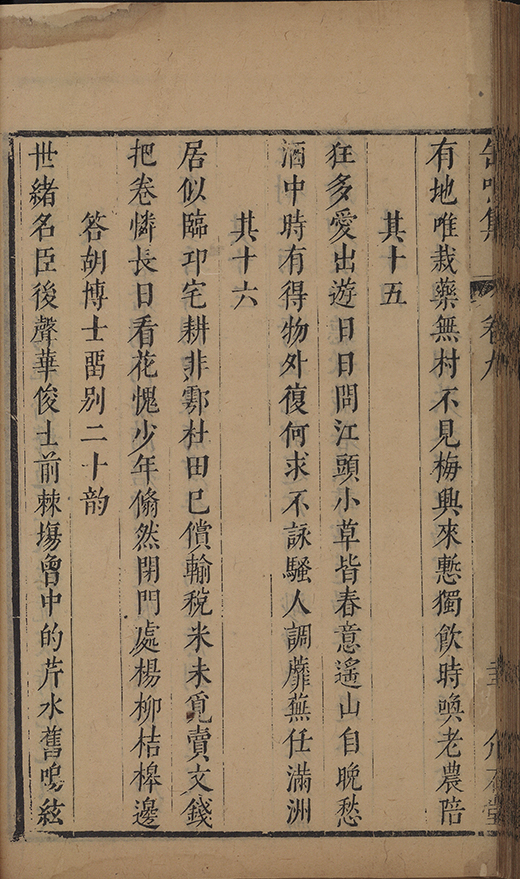 缶鳴集 卷九
有地唯栽藥無村不見梅興來慙獨飲時喚老農陪
其十五
狂多愛出遊日日問江頭小草皆春意遙山自晚愁
酒中時有得物外復何求不詠騷人調蘼蕪任滿洲
其十六
居似臨邛宅耕非鄠杜田已償輸稅米未覓賣文錢
把卷憐長日看花愧少年翛然閉門處楊柳桔槔邊
答胡博士畱别二十韵
世緒名臣後聲華俊士前棘塲曾中的芹水舊鳴絃